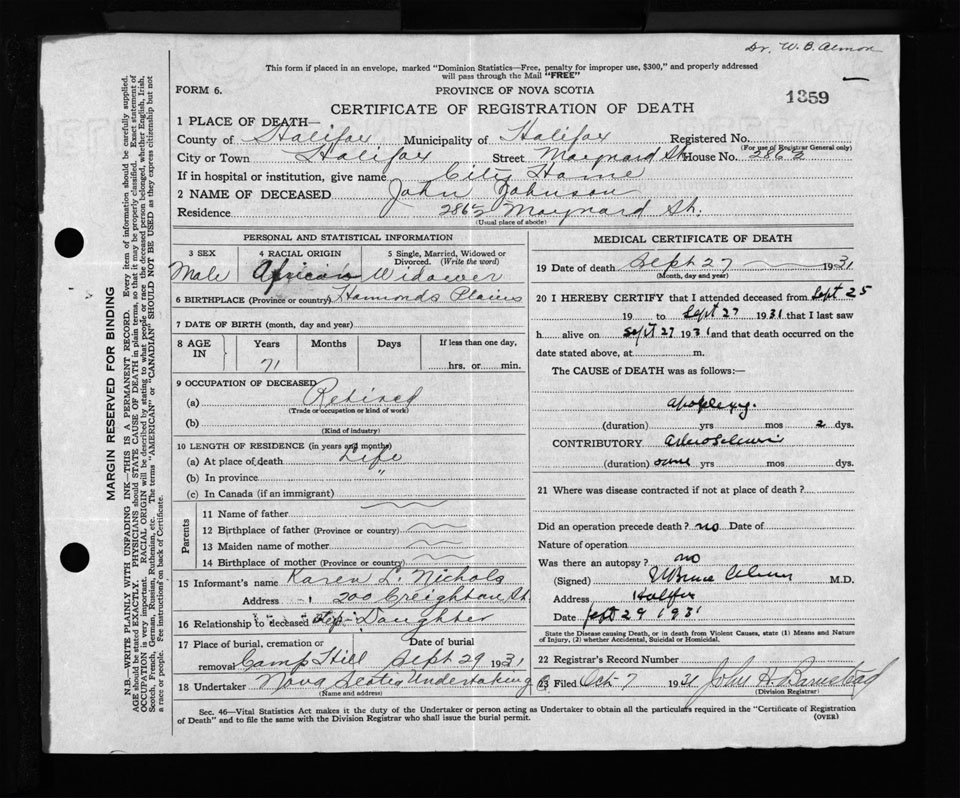 Dr. W. B. Almon
This form if placed in an envelope, marked "Dominion Statistics—Free, penalty for improper use, $300," and properly addressed
will pass through the Mail "FREE"
FORM 6.
PROVINCE OF NOVA SCOTIA
1359
CERTIFICATE OF REGISTRATION OF DEATH
1 PLACE OF DEATH—
County of Halifax Municipality of Halifax Registered No.
(For use of Registrar General only)
City or Town Halifax Street Maynard St. House No.
If in hospital or institution, give name City Home
2 NAME OF DECEASED John Johnson
Residence Maynard St.
(Usual place of abode)
PERSONAL AND STATISTICAL INFORMATION
3 SEX
Male
4 RACIAL ORIGIN
African
5 Single, Married, Widowed or
Divorced. (Write the word)
Widower
6 BIRTHPLACE (Province or country) Hammonds Plains
7 DATE OF BIRTH (month, day and year)
8 AGE
IN
Years
71
Months
Days
If less than one day,
hrs. or min.
9 OCCUPATION OF DECEASED
(a) Retired
(Trade or occupation or kind of work)
(b)
(Kind of industry)
10 LENGTH OF RESIDENCE (in years and months)
(a) At place of death Life
(b) In province "
(c) In Canada (if an immigrant)
Parents
11 Name of father
12 Birthplace of father (Province or country)
13 Maiden name of mother
14 Birthplace of mother (Province or country)
15 Informant's name Karen L. Nichols
Address 200 Creighton St.
16 Relationship to deceased Step-Daughter
17 Place of burial, cremation or
removal Camp Hill
Date of burial
Sept 29 1931
18 Undertaker Nova Scotia Undertaking
(Name and address)
MEDICAL CERTIFICATE OF DEATH
19 Date of death Sept 27 1931
(Month, day and year)
20 I HEREBY CERTIFY that I attended deceased from Sept 25
19 to Sept 27 1931 that I last saw
h alive on Sept 27 1931 and that death occurred on the
date stated above, at m.
The CAUSE of DEATH was as follows:—
apoplexy.
(duration) yrs mos 2 dys.
CONTRIBUTORY
(duration) some yrs mos dys.
21 Where was disease contracted if not at place of death?
Did an operation precede death? no Date of
Nature of operation
Was there an autopsy? no
(Signed) M.D.
Address Halifax
Date Sept 29 1931
State the Disease causing Death, or in death from Violent Causes, state (1) Means and Nature
of Injury, (2) whether Accidental, Suicidal or Homicidal.
22 Registrar's Record Number
23 Filed Oct 7 1931 John H. Barnstead
(Division Registrar)
Sec. 46—Vital Statistics Act makes it the duty of the Undertaker or person acting as Undertaker to obtain all the particulars required in the "Certificate of Registration
of Death" and to file the same with the Division Registrar who shall issue the burial permit.
(OVER)
MARGIN RESERVED FOR BINDING
N.B.—WRITE PLAINLY WITH UNFADING INK—THIS IS A PERMANENT RECORD. Every item of information should be carefully supplied.
AGE should be stated EXACTLY. PHYSICIANS should STATE CAUSE OF DEATH in plain terms, so that it may be properly classified. Exact statement of
OCCUPATION is very important. RACIAL ORIGIN will be described by stating to what people or race the deceased person belonged, whether English, Irish,
Scotch, French, German, Russian, Ruthenian, etc. The terms "AMERICAN" or "CANADIAN" SHOULD NOT BE USED as they express citizenship but not
a race or people. See instructions on back of Certificate.